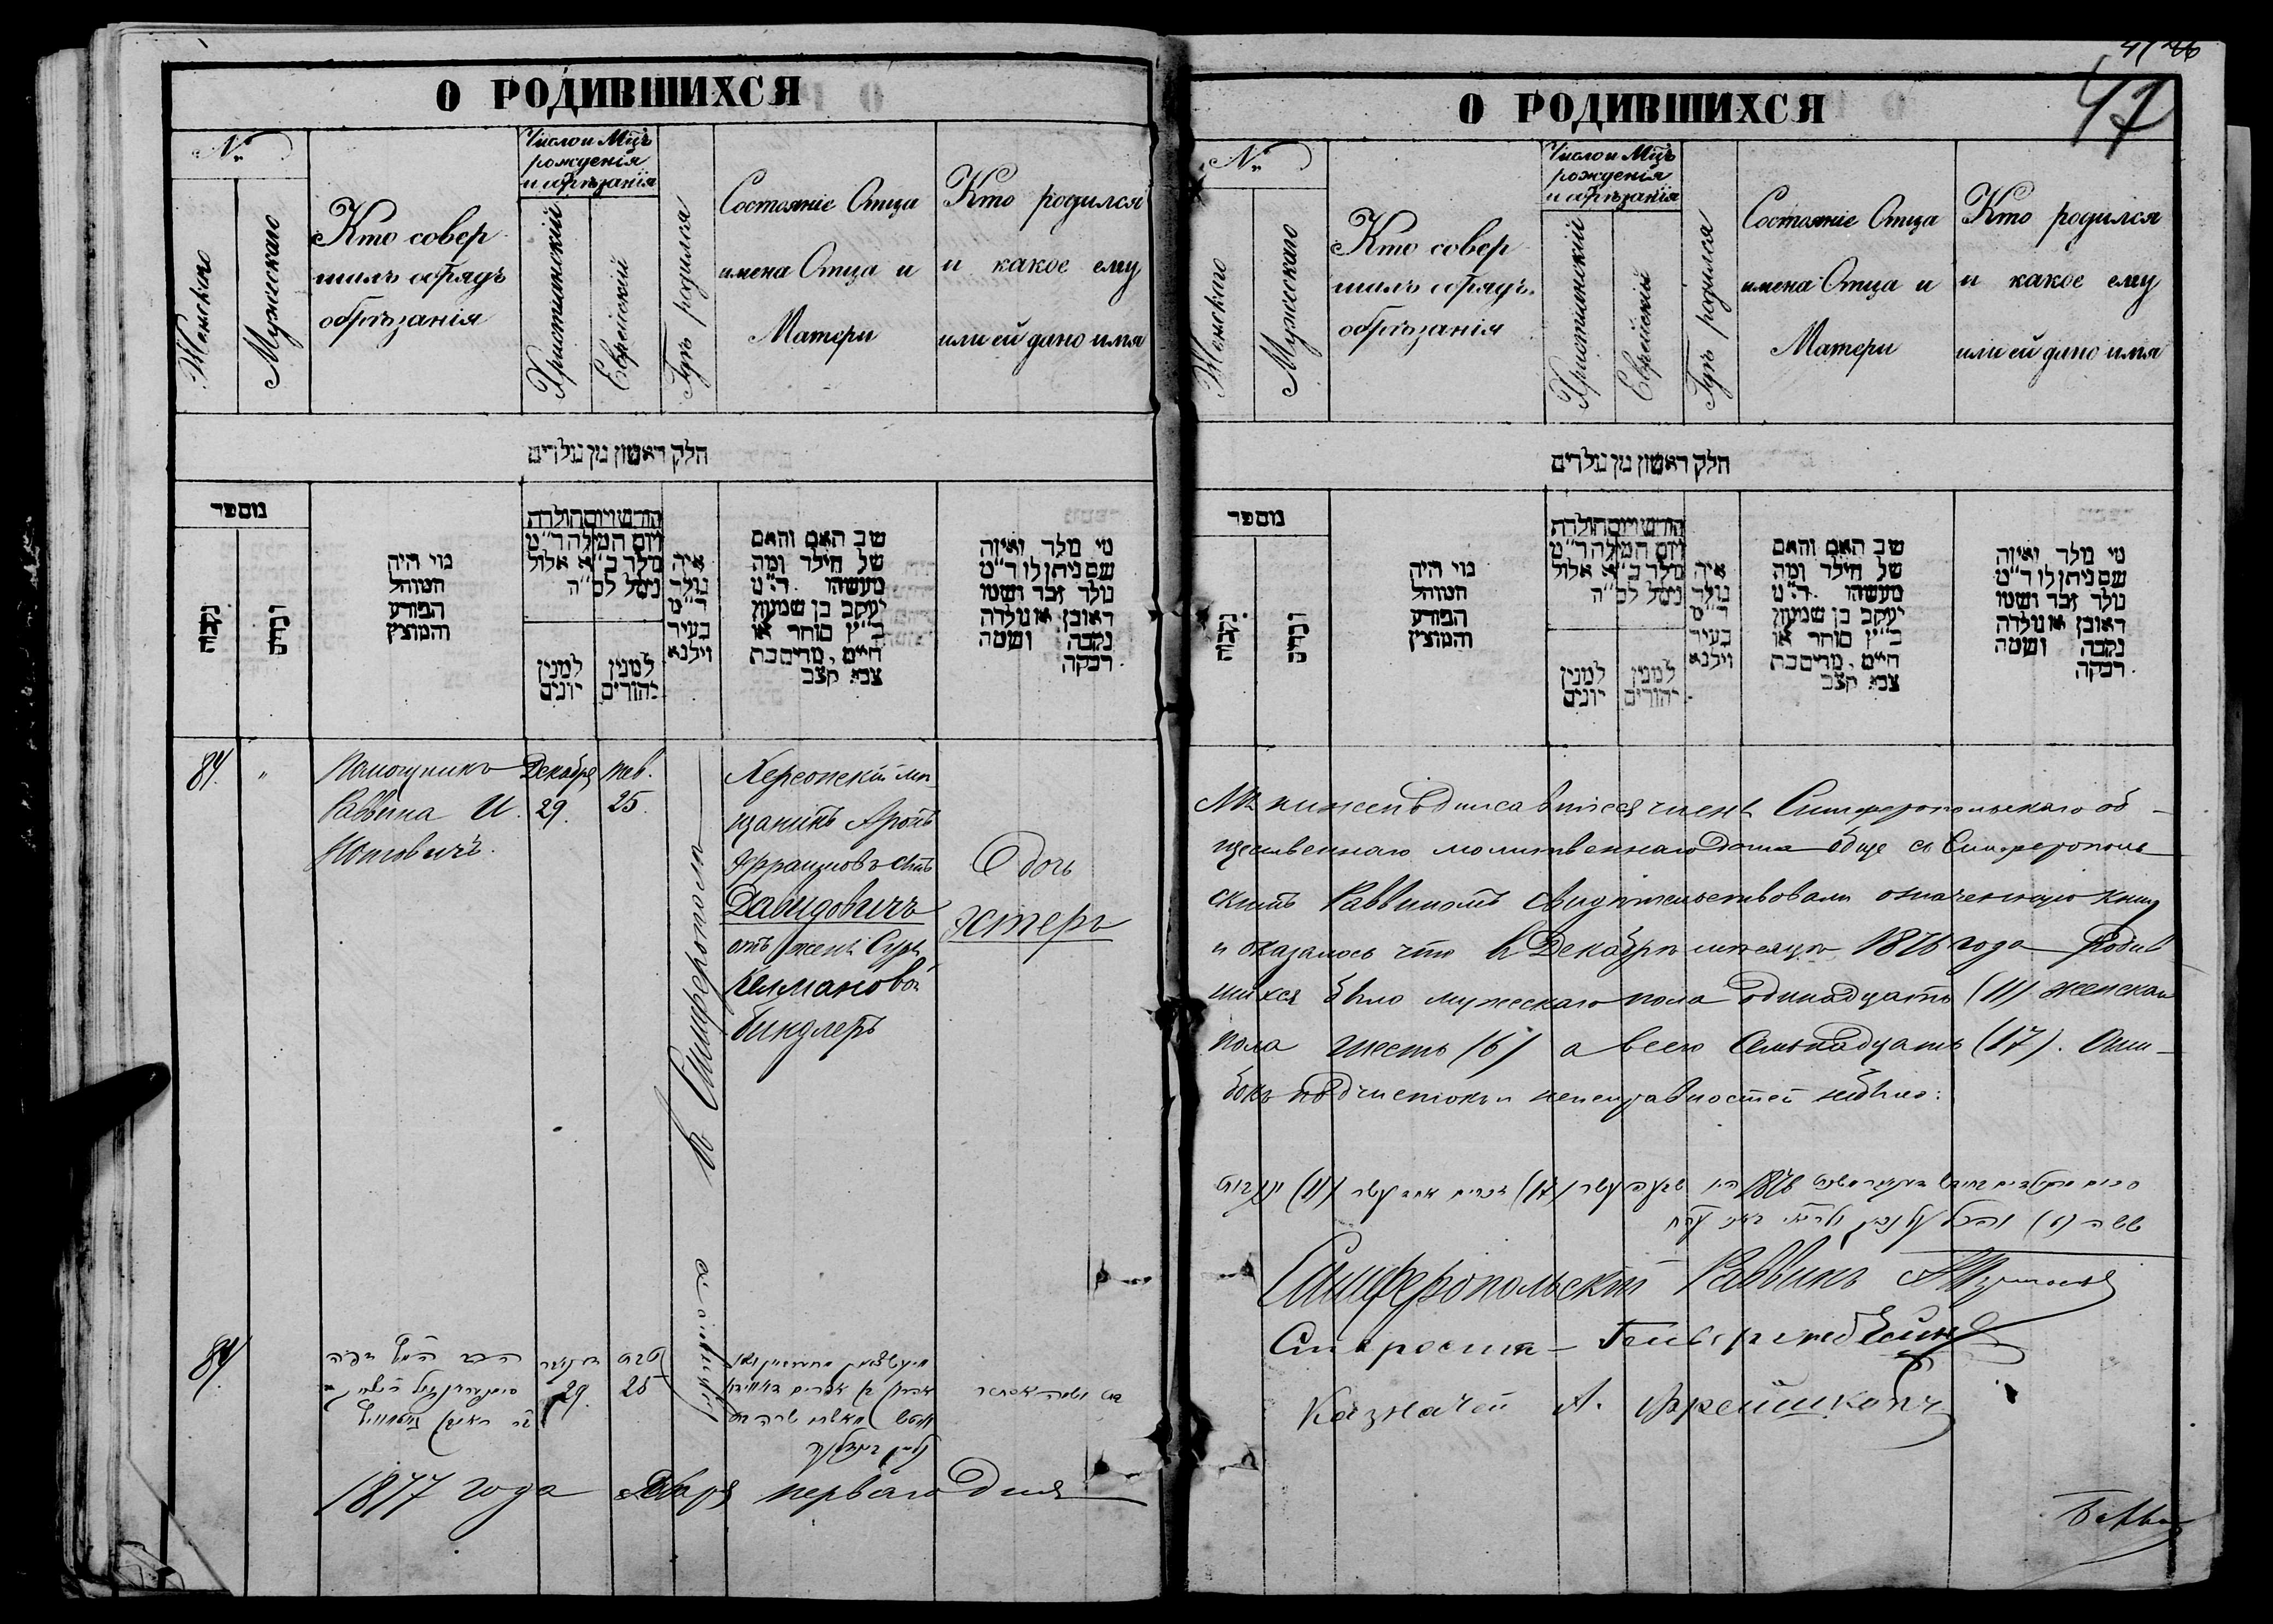 О РОДИВШИХСЯ
№
Женскаго
Мужескаго
Кто совер
шилъ обрядъ
обрѣзанія
Число и Мцъ
рожденія
и обрѣзанія
Христіанскій
Еврейскій
Гдѣ родился
Состояніе Отца
имена Отца и
Матери
Кто родился
и какое ему
или ей дано имя
חלק ראשון מן נולדים
מספר
נקבות
זכרים
מי היה
המוהל
הפורע
והמוצץ
חודש ויום הולדת
ויום המילה ד"מ
נולד כ"א אלול
נימל לס"ה
למנין
יונים
למנין
יהודים
איה
נולד
ד"מ
בעיר
וילנא
שב האם והאם
של הילד ומה
מעשהו ד"מ
יעקב בן שמעון
כ"ץ סוחר או
חייט, מרים בת
צבי קצב
מי נולד ואיזה
שם ניתן לו ד"מ
נולד זכר ושמו
ראובן או נולדה
נקבה ושמה
רבקה.
84. "
Помощникъ
Раввина И.
Нотовичъ.
Декабря
29.
тев.
25.
в Симферополѣ
Херсонскій мѣ
щанинъ Аронъ
Ефраимовъ сынъ
Давидовичъ
отъ жены Суры
Келмановой
биндлеръ
Дочь
Эстеръ
84.
29.
טבת
25
1877 года Января перваго Дня
47
О РОДИВШИХСЯ
№
Женскаго
Мужескаго
Кто совер
шилъ обрядъ
обрѣзанія
Число и Мцъ
рожденія
и обрѣзанія
Христіанскій
Еврейскій
Гдѣ родился
Состояніе Отца
имена Отца и
Матери
Кто родился
и какое ему
или ей дано имя
חלק ראשון מן נולדים
מספר
נקבות
זכרים
מי היה
המוהל
הפורע
והמוצץ
חודש ויום הולדת
ויום המילה ד"מ
נולד כ"א אלול
נימל לס"ה
למנין
יונים
למנין
יהודים
איה
נולד
ד"מ
בעיר
וילנא
שב האם והאם
של הילד ומה
מעשהו ד"מ
יעקב בן שמעון
כ"ץ סוחר או
חייט, מרים בת
צבי קצב
מי נולד ואיזה
שם ניתן לו ד"מ
נולד זכר ושמו
ראובן או נולדה
נקבה ושמה
רבקה.
Мы нижеподписавшіеся члены Симферопольскаго об-
щественнаго молитвеннаго Дома обще съ Симферополь
скимъ Раввиномъ свидѣтельствовали означенную книгу
и оказалось что в Декабрѣ мѣсяцѣ 1876 года Родив
шихся было мужескаго пола одинадцать (11) женскаго
пола шесть (6) а всего Семьнадцать (17). Оши-
бокъ подчистокъ и неисправностей небыло:
Симферопольскій Раввинъ
Староста
Казначей А.